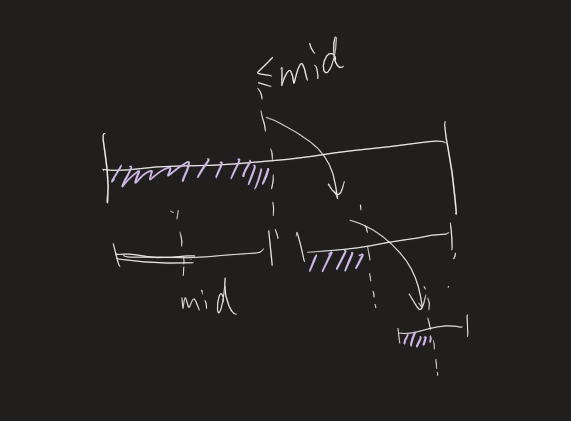 ≤mid
mid